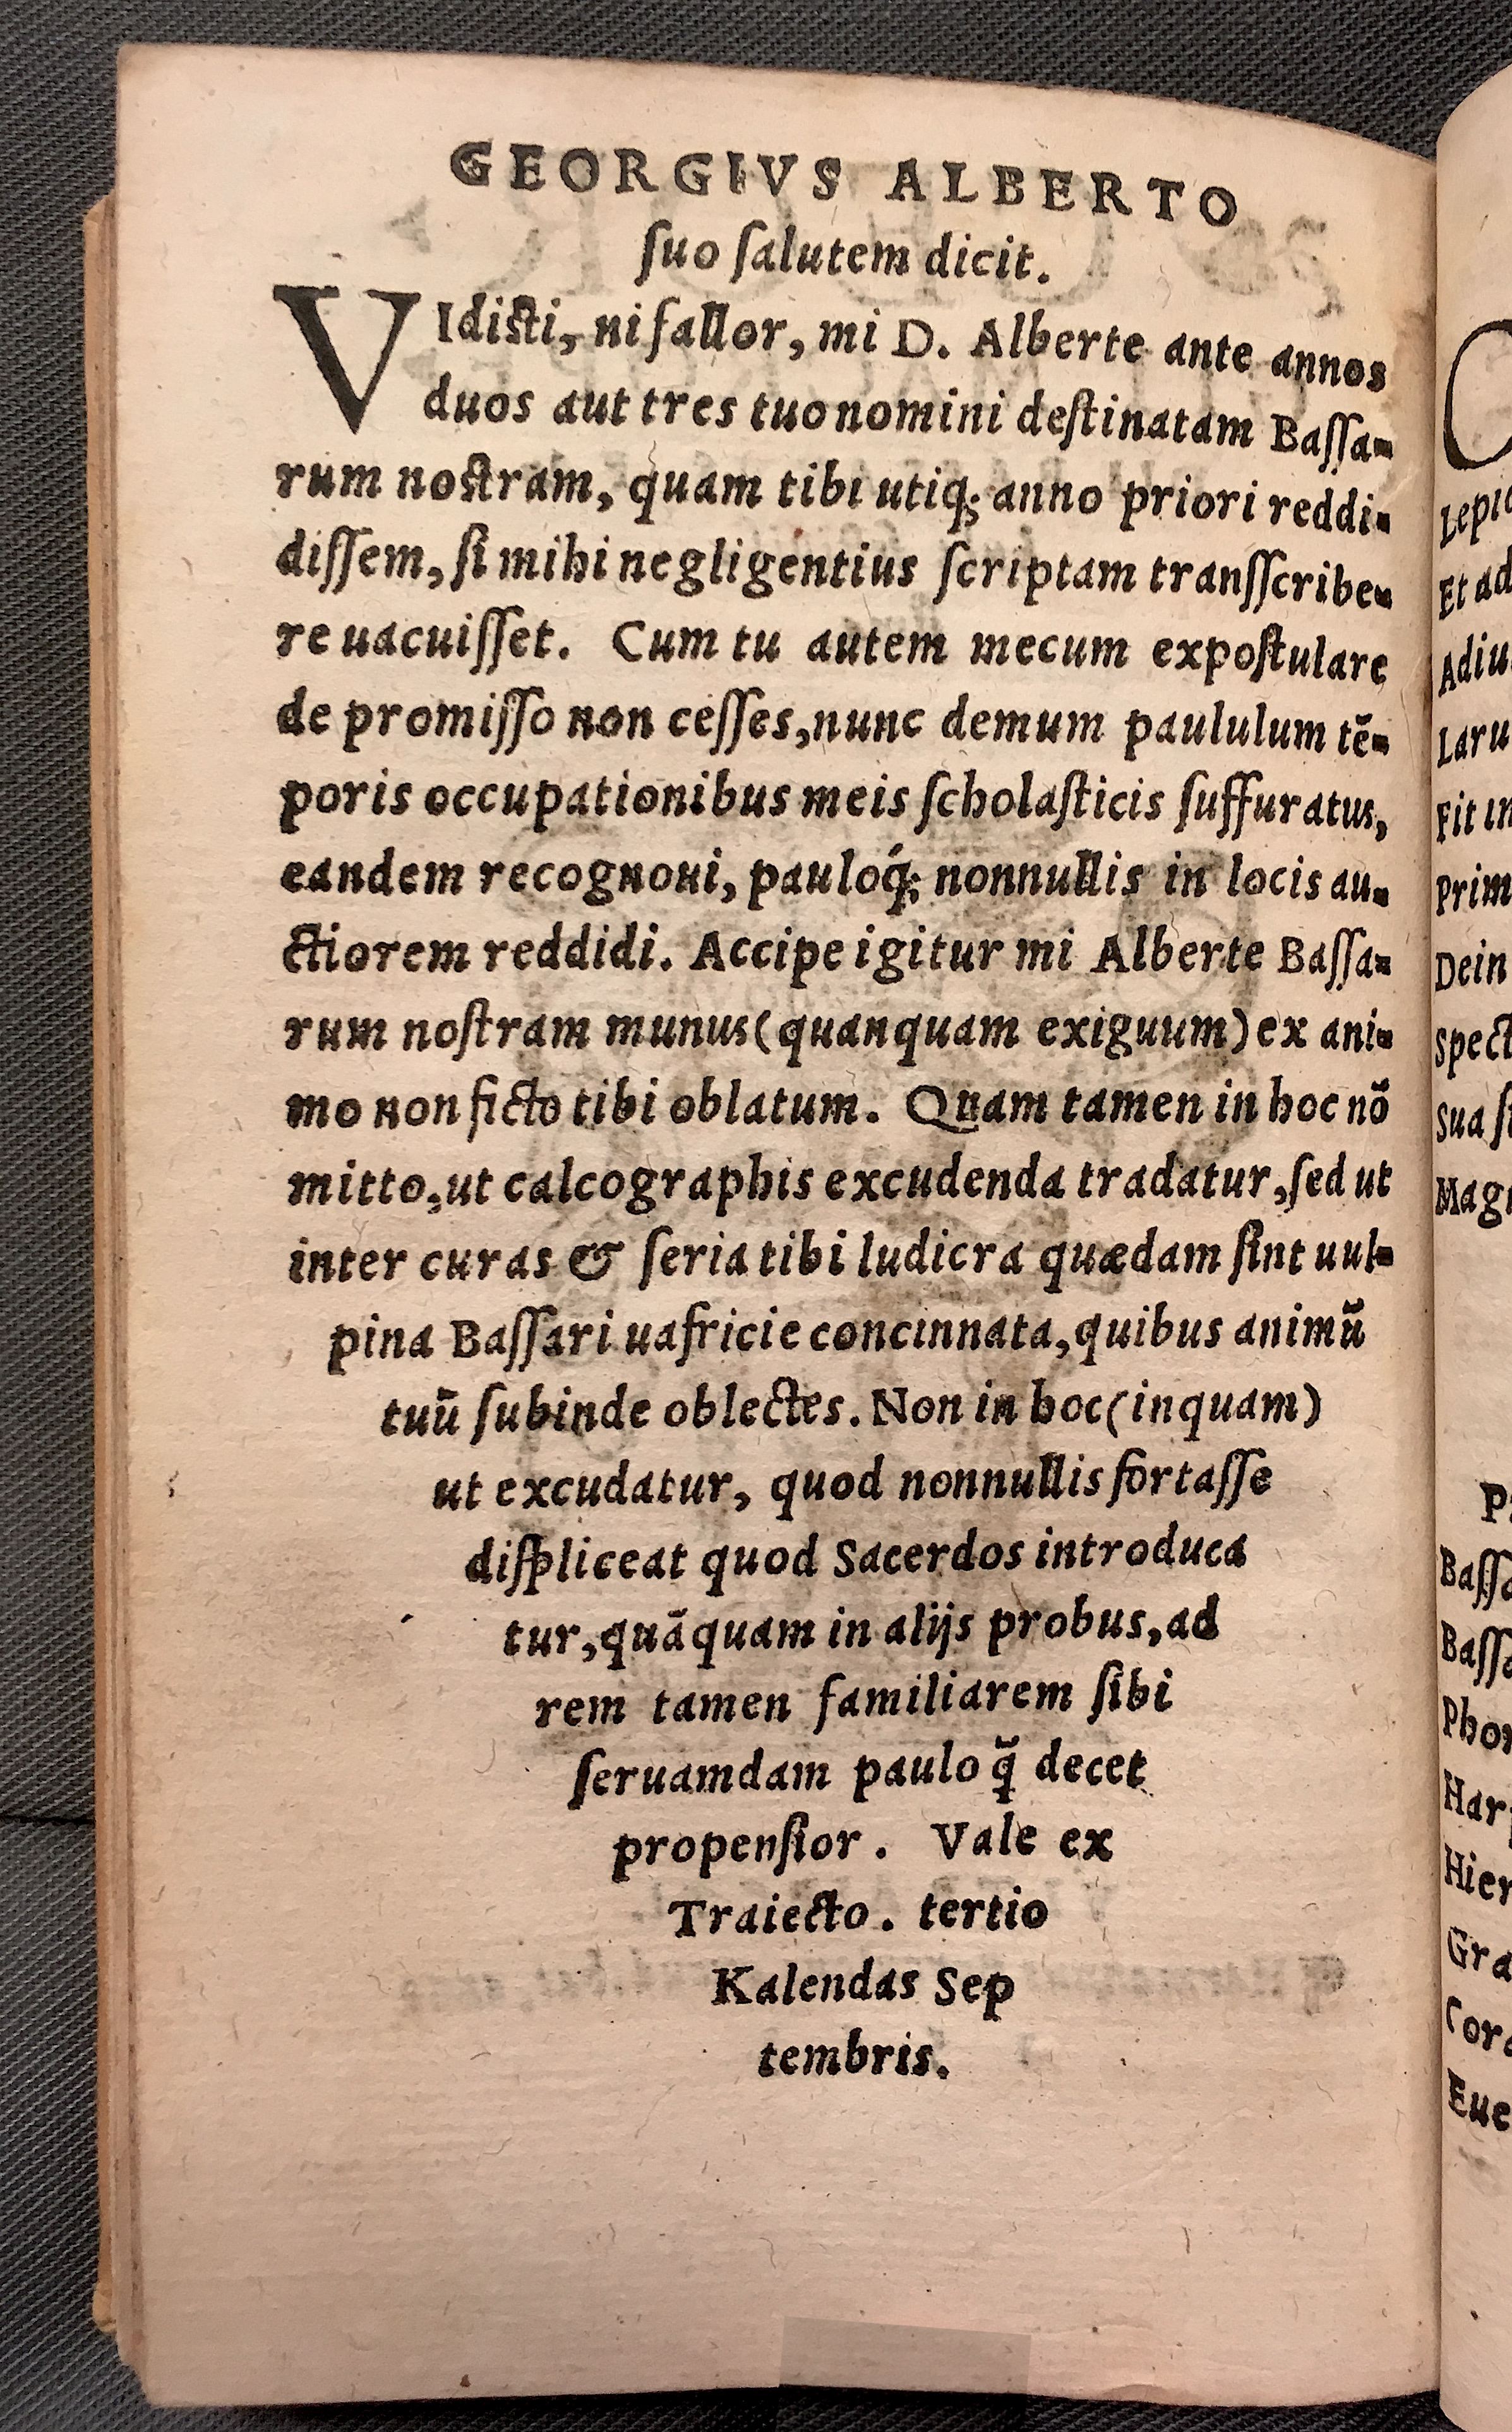 GEORGIVS ALBERTO
ſuo ſalutem dicit.
VIdiſti, ni fallor, mi D. Alberte ante annos
duos aut tres tuo nomini deſtinatam Baſſa-
rum noſtram, quam tibi utiq; anno priori reddi-
diſſem, ſi mihi negligentius ſcriptam tranſſcribe-
re uacuiſſet. Cum tu autem mecum expoſtulare
de promiſſo non ceſſes, nunc demum paululum tē-
poris occupationibus meis ſcholaſticis ſuffuratus,
eandem recognoui, pauloq́; nonnullis in locis au-
ctiorem reddidi. Accipe igitur mi Alberte Baſſa-
rum noſtram munus (quanquam exiguum) ex ani-
mo non ficto tibi oblatum. Quam tamen in hoc nō
mitto, ut calcographis excudenda tradatur, ſed ut
inter curas & ſeria tibi ludicra quædam ſint uul-
pina Baſſari uafricie concinnata, quibus animū
tuū ſubinde oblectes. Non in hoc (inquam)
ut excudatur, quod nonnullis fortaſſe
diſpliceat quod Sacerdos introduca
tur, quāquam in alijs probus, ad
rem tamen familiarem ſibi
ſeruamdam paulo q̄ decet
propenſior. Vale ex
Traiecto. tertio
Kalendas Sep
tembris.
Et ad
Adiu
Laru
Fit in
Prim
Dein
Spect
Sua ſi
Magi
Baſſa
Baſſa
Phor
Har
Hier
Gra
Cora
Eue